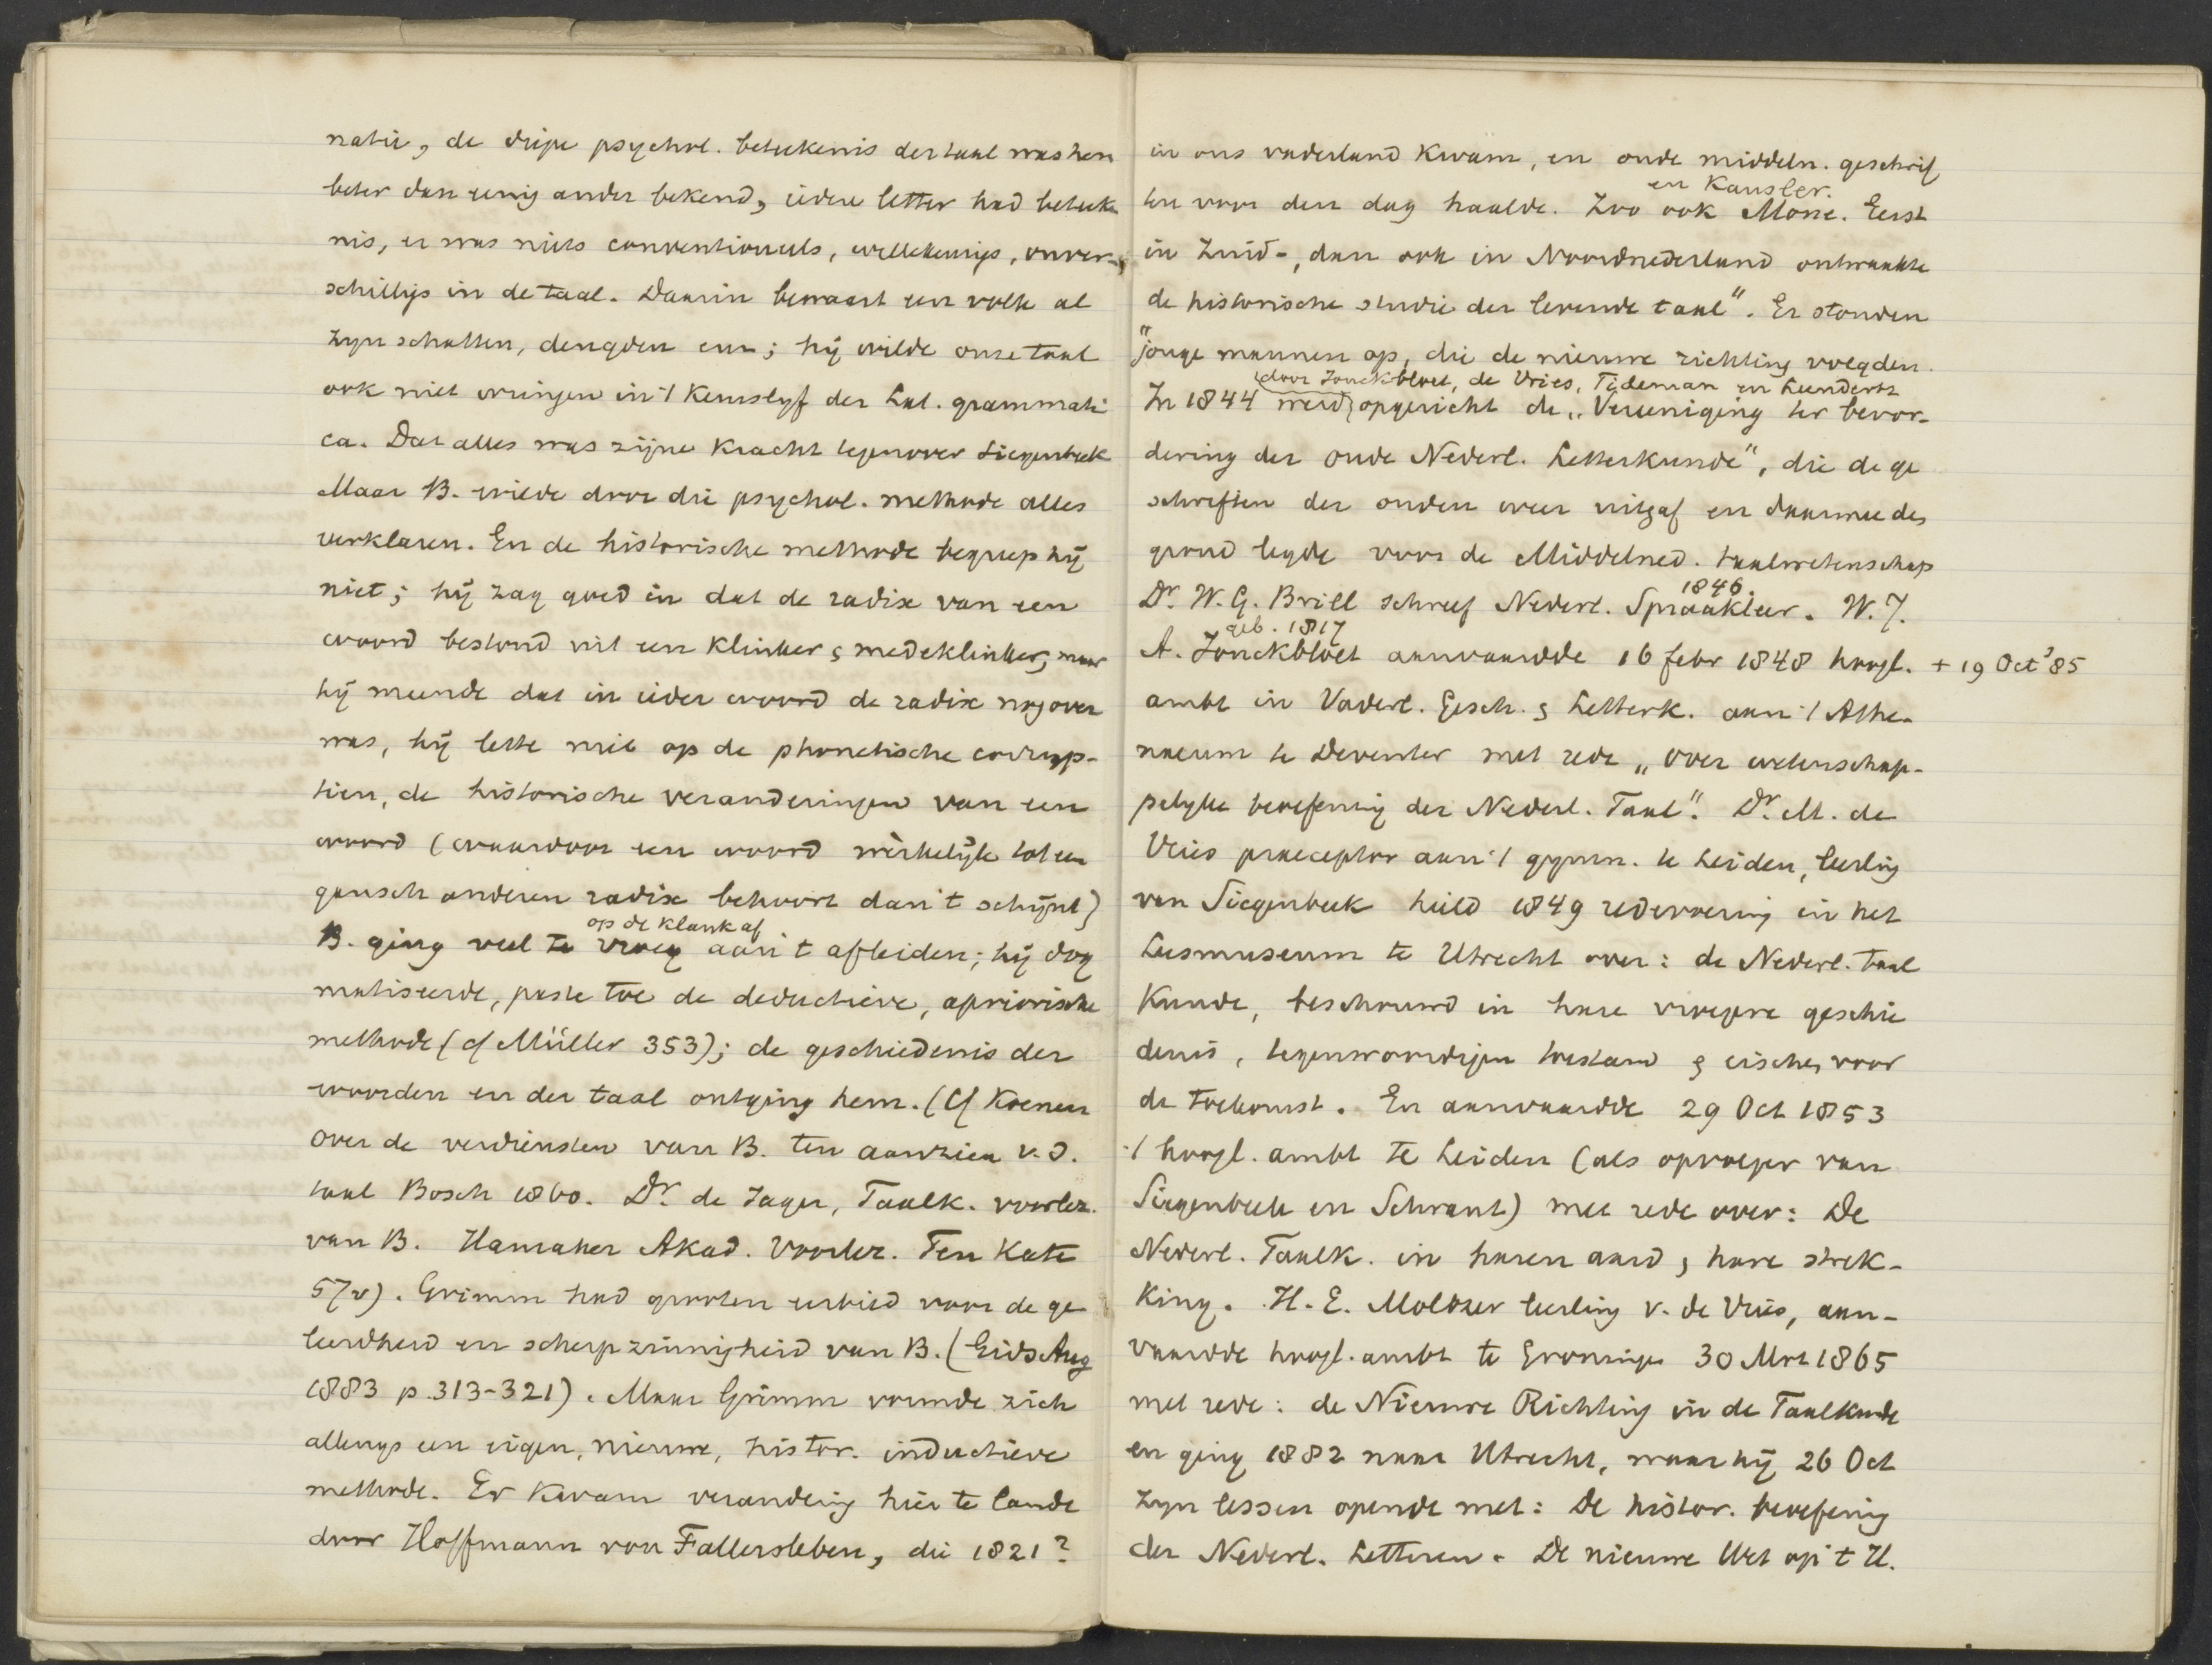 natie, de diepe psychol. beteekenis der taal was hem
beter dan eenig ander bekend, iedere letter had beteeke
nis, er was niets conventioneels, willekeurigs, onver-
schilligs in de taal. Daarin bewaart een volk al
zyn schatten, deugden enz; hij wilde onze taal
ook niet wringen in 't keurslyf der Lat. grammati
ca. Dat alles was zijne kracht tegenover Siegenbeek
Maar B. wilde door die psychol. methode alles
verklaren. En de historische methode begreep hij
niet; hij zag goed in dat de radix van een
woord bestond uit een klinker & medeklinker, maar
hij meende dat in ieder woord de radix nog over
was, hij lette niet op de phonetische corrup-
tien, de historische veranderingen van een
woord (waardoor een woord werkelijk tot een
gansch anderen radix behoort dan 't schijnt)
op de klank af
B. ging veel te vroeg aan 't afleiden; hij dog
matiseerde, paste toe de deductieve, aprioristische
methode (cf Müller 353); de geschiedenis der
woorden en der taal ontging hem. (Cf Koenen
over de verdiensten van B. ten aanzien v. d.
taal Bosch 1860. Dr. de Jager, Taalk. voorlez.
van B. Hamaker Akad. Voorlez. Ten Kate
57v). Grimm had grooten eerbied voor de ge
leerdheid en scherpzinnigheid van B. (Gids Aug
1883 p. 313-321). Maar Grimm vormde zich
allengs een eigen, nieuwe, histor. inductieve
methode. Er kwam verandering hier te lande
door Hoffmann von Fallersleben, die 1821?
in ons vaderland kwam, en oude middeln. geschrif
en Kausler.
ten voor den dag haalde. Zoo ook Mone. Eerst
in Zuid-, dan ook in Noordnederland ontwaakte
de historische studie der levende taal". Er stonden
"jonge mannen op, die de nieuwe richting volgden.
door Jonckbloet, de Vries, Tideman en Leendertz
In 1844 werd opgericht de „Vereeniging ter bevor-
dering der oude Nederl. Letterkunde", die de ge
schriften der ouden weer uitgaf en daarmee den
grond legde voor de Middelned. taalwetenschap
1846.
Dr. W. G. Brill schreef Nederl. Spraakleer. W. J.
geb. 1817
A. Jonckbloet aanvaardde 16 febr 1848 hoogl. + 19 Oct '85
ambt in Vaderl. Gesch. & Letterk. aan 't Athe-
naeum te Deventer met rede „over wetenschap-
pelyke beoefening der Nederl. Taal". Dr. M. de
Vries praeceptor aan 't gymn. te Leiden, leerling
van Siegenbeek hield 1849 redevoering in het
Leesmuseum te Utrecht over: de Nederl. taal
kunde, beschouwd in hare vroegere geschie
denis, tegenwoordigen toestand & eischen voor
de toekomst. En aanvaardde 29 Oct 1853
't hoogl. ambt te Leiden (als opvolger van
Siegenbeek en Schrant) met rede over: De
Nederl. Taalk. in haren aard & hare strek-
king. H. E. Moltzer leerling v. de Vries, aan-
vaardde hoogl. ambt te Groningen 30 Mrt 1865
met rede: de Nieuwe Richting in de Taalkunde
en ging 1882 naar Utrecht, waar hij 26 Oct
zyn lessen opende met: De histor. beoefening
der Nederl. Letteren. De nieuwe Wet op 't H.